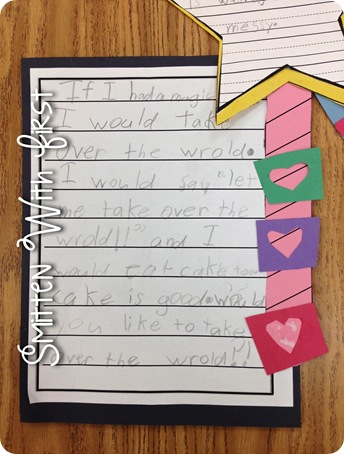 messy.
If I had a magic
I would take
over the wrold.
I would say "let
me take over the
wrold!!" and I
would eat cake too.
cake is good. would
you like to take
over the wrold?!
Smitten With First